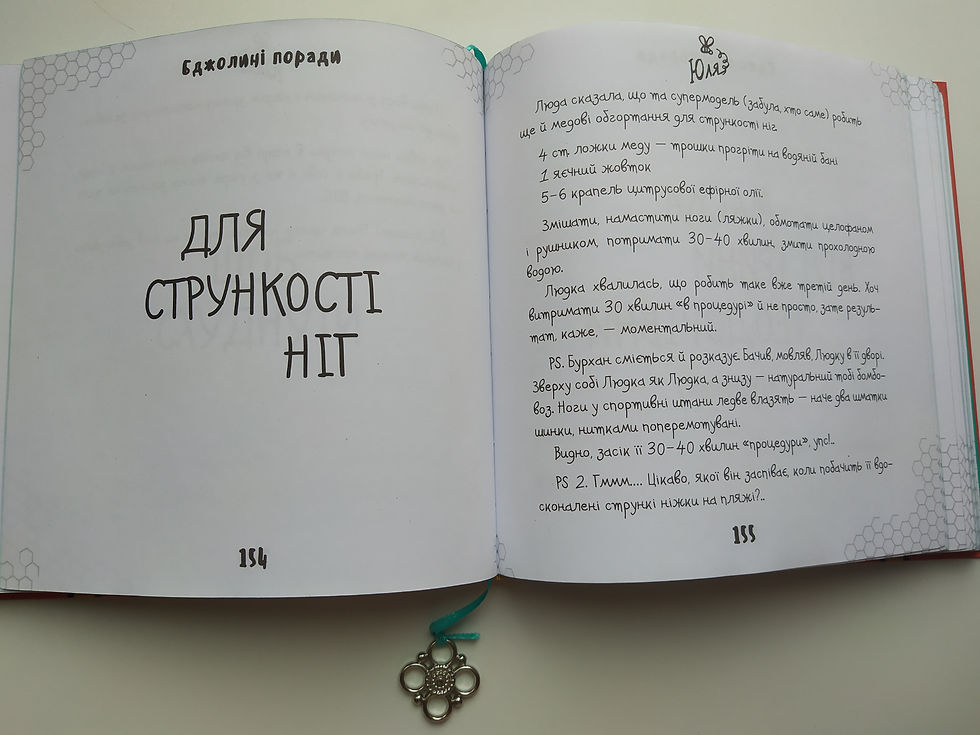 Бджолині поради
ДЛЯ
СТРУНКОСТІ
НІГ
154
Юля
Люда сказала, що та супермодель (забула, хто саме) робить
ще й медові обгортання для стрункості ніг.
4 ст. ложки меду — трошки прогріти на водяній бані
1 яєчний жовток
5-6 крапель цитрусової ефірної олії.
Змішати, намастити ноги (ляжки), обмотати целофаном
і рушником, потримати 30-40 хвилин, змити прохолодною
водою.
Людка хвалилась, що робить таке вже третій день. Хоч
витримати 30 хвилин «в процедурі» й не просто, зате резуль-
тат, каже, — моментальний.
PS. Бурхан сміється й розказує. Бачив, мовляв, Людку в її дворі.
Зверху собі Людка як Людка, а знизу — натуральний тобі бомбо-
воз. Ноги у спортивні штани ледве влазять — наче два шматки
шинки, нитками поперемотувані.
Видно, засік її 30-40 хвилин «процедури», упс!..
PS 2. Гммм.... Цікаво, якої він заспіває, коли побачить її вдо-
сконалені стрункі ніжки на пляжі?..
155